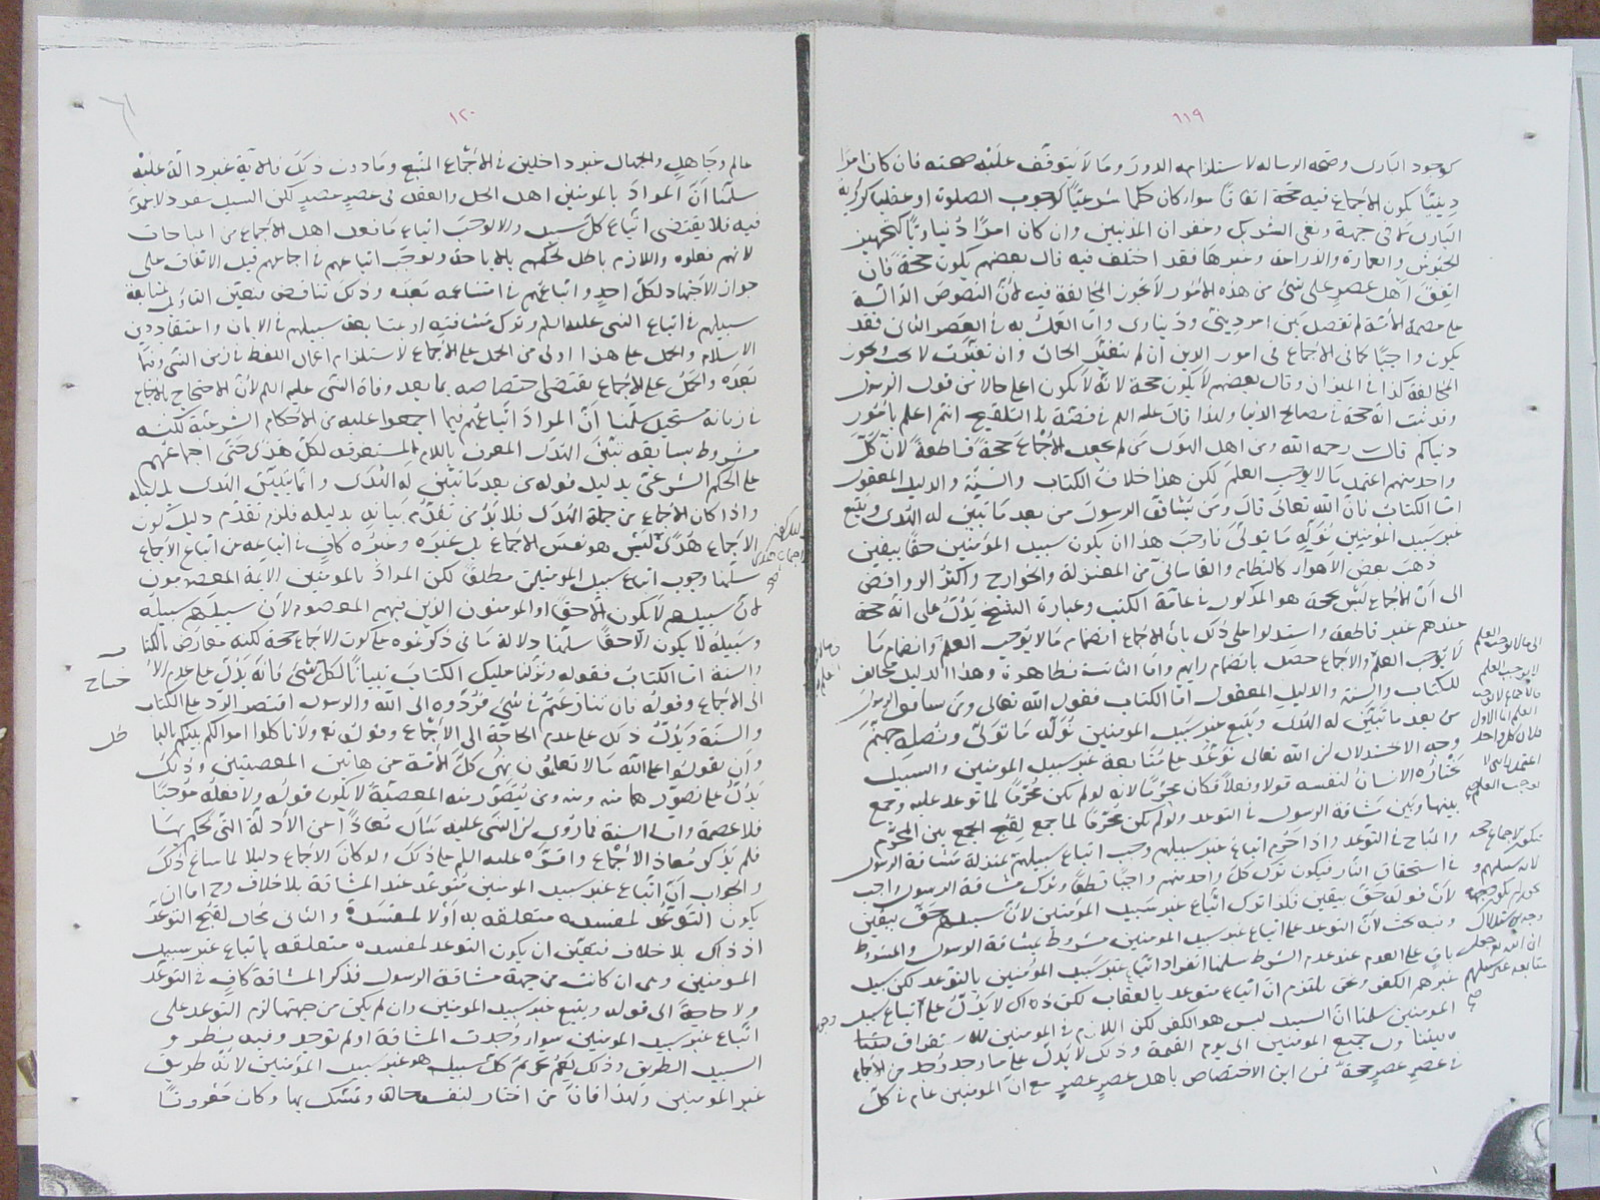 ١١٩
كوجود البارى وصحة الرسالة لاستلزامه الدور وما لا يتوقف عليه صحته فان كان امرًا
دينيًا يكون الاجماع فيه حجة اتفاقًا سواء كان حكما شرعيًا كوجوب الصلوة او عقليا كرؤية
البارى لا فى جهة ونفى الشريك وغفران المذنبين وان كان امرًا دنياويًا كتجهيز
الجيوش والعمارة والزراعة وغيرها فقد اختلف فيه قال بعضهم يكون حجة فان
اتفق اهل عصر على شئ من هذه الامور لا يجوز المخالفة فيه لان النصوص الدالة
على عصمة الامة لم تفصل بين امر دينى ودنياوى واما العمل به فى العصر الثانى فقد
يكون واجبًا كما فى الاجماع فى امور الدين ان لم يتغير الحال وان تغيرت لا يجب ويجوز
المخالفة كذا فى الميزان وقال بعضهم لا يكون حجة لانه لا يكون اعلى حالا من قول الرسول
وقد ثبت انه حجة فى مصالح الدنيا ولهذا قال عليه السلم فى قصة التلقيح انتم اعلم بامور
دنياكم قال رحمه الله ومن اهل الهوى من لم يجعل الاجماع حجة قاطعة لان كل
واحد منهم اعتمد ما لا يوجب العلم لكن هذا خلاف الكتاب والسنة والدليل المعقول
اما الكتاب فان الله تعالى قال ومن يشاقق الرسول من بعد ما تبين له الهدى ويتبع
غير سبيل المؤمنين نوله ما تولى فاوجب هذا ان يكون سبيل المؤمنين حقا بيقين
ذهب بعض الاهواء كالنظام والقاسانى من المعتزلة والخوارج واكثر الروافض
الى ان الاجماع ليس بحجة هو المذكور فى عامة الكتب وعبارة الشيخ يدل على انه حجة
عندهم غير قاطعة واستدلوا على ذلك بان الاجماع انضمام ما لا يوجب العلم وانضمام ما
لا يوجب العلم والاجماع حصل بانضمام رايهم واما الثانية فظاهرة وهذا الدليل مخالف
للكتاب والسنة والدليل المعقول اما الكتاب فقول الله تعالى ومن يشاقق الرسول
من بعد ما تبين له الهدى ويتبع غير سبيل المومنين نوله ما تولى ونصله جهنم
وجه الاستدلال ان الله تعالى توعد على متابعة غير سبيل المومنين والسبيل
يختاره الانسان لنفسه قولا وفعلا فكان محرمًا لانه لو لم يكن محرمًا لما توعد عليه وجمع
بينها وبين مشاقة الرسول فى التوعد ولو لم يكن محرمًا لما جمع لقبح الجمع بين المحرم
والمباح فى التوعد واذا حرم اتباع غير سبيلهم وجب اتباع سبيلهم بمنزلة مشاقة الرسول
فى استحقاق النار فيكون ترك كل واحد منهم واجبًا قطعًا وترك مشاقة الرسول واجب
لان قوله حق بيقين فكذا ترك اتباع غير سبيل المؤمنين لان سبيلهم حق بيقين
وفيه بحث لان التوعد على اتباع غير سبيل المومنين مشروط بمشاقة الرسول والمشروط
باق على العدم عند عدم الشرط سلمنا انفراد اتباع غير سبيل المؤمنين بالتوعد لكن سبيل
غيرهم الكفر ونحن نلتزم ان اتباعه متوعد بالعقاب لكن ذاك لا يدل على اتباع سبيل
المومنين سلمنا ان السبيل ليس هو الكفر لكن اللازم فى المومنين للاستغراق
فيتناول جميع المومنين الى يوم القيمة وذلك لا يدل على ما وجد من الاجماع
فى عصر عصر حجة فمن اين الاختصاص باهل عصر عصر مع ان المومنين عام فى كل
الى ما لا يوجب العلم
لا يوجب العلم
فالاجماع لا يوجب
العلم اما الاول
فلان كل واحد
اعتمد ما لا
يوجب العلم
١٢٠
عالم وجاهل والجهال غير داخلين فى الاجماع المتبع وما دون ذلك فالاية غير دالة عليه
سلمنا ان المراد بالمومنين اهل الحل والعقد فى عصر عصر لكن السبيل مفرد لا عموم
فيه فلا يقتضى اتباع كل سبيل والا لوجب اتباع ما فعل اهل الاجماع من المباحات
لانهم فعلوه واللازم باطل لحكمهم بالاباحة ولوجب اتباعهم فى اجماعهم قبل الاتفاق على
جواز الاجتهاد لكل احد واتباعهم فى امتناعه بعده وذلك تناقض فتعين التاويل بمتابعة
سبيلهم فى اتباع النبى عليه السلم وترك مشاقته او بمتابعة سبيلهم فى الايمان واعتقاد دين
الاسلام والحمل على هذا اولى من الحمل على الاجماع لاستلزام اعمال اللفظ فى زمن النبى وفيما
بعده والحمل على الاجماع يقتضى اختصاصه بما بعد وفاة النبى عليه السلم لان الاحتجاج بالاجماع
فى زمانه مستحيل سلمنا ان المراد اتباعهم فيما اجمعوا عليه من الاحكام الشرعية لكنه
مشروط بسابقة تبين الهدى المعرف باللام المستغرقة لكل هدى حتى اجماعهم
على الحكم الشرعى بدليل قوله من بعد ما تبين له الهدى وانما يتبين الهدى بدليله
واذا كان الاجماع من جملة الهدى فلا بد من تقدم بيانه بدليله فلزم تقدم دليل كون
الاجماع هدى ليس هو نفس الاجماع بل غيره وغيره كاف فى اتباعه عن اتباع الاجماع
سلمنا وجوب اتباع سبيل المومنين مطلقا لكن المراد بالمومنين الايمة المعصومون
لان سبيلهم لا يكون الا حقا او المومنون الذين فيهم المعصوم لان سبيلهم سبيله
وسبيله لا يكون الا حقا سلمنا دلالة ما ذكرتموه على كون الاجماع حجة لكنه معارض بالكتاب
والسنة اما الكتاب فقوله ونزلنا عليك الكتاب تبيانا لكل شئ فانه يدل على عدم الا
حتياج
الى الاجماع وقوله فان تنازعتم فى شئ فردوه الى الله والرسول اقتصر الرد على الكتاب
والسنة ويدل ذلك على عدم الحاجة الى الاجماع وقوله تع ولا تاكلوا اموالكم بينكم بالبا
طل
وان تقولوا على الله ما لا تعلمون نهى كل الامة عن هاتين المعصيتين وذلك
يدل على تصورهما منه ومن تتصور منه المعصية لا يكون قوله ولا فعله موجبًا
فلا عصمة واما السنة فما روى ان النبى عليه سال معاذًا عن الادلة التى يحكم بها
فلم يذكر معاذ الاجماع واقره عليه السلم على ذلك ولو كان الاجماع دليلا لما ساغ ذلك
والجواب ان اتباع غير سبيل المومنين متوعد عند المشاقة بلا خلاف وح اما ان
يكون التوعد لمفسده متعلقه به او لا لمفسدة والثانى محال لقبح التوعد
اذ ذاك بلا خلاف فتعين ان يكون التوعد لمفسده متعلقه باتباع غير سبيل
المومنين وهى ان كانت من جهة مشاقة الرسول فذكر المشاقة كاف فى التوعد
ولا حاجة الى قوله ويتبع غير سبيل المومنين وان لم يكن من جهتها لزم التوعد على
اتباع غير سبيل المومنين سواء وجدت المشاقة او لم توجد وفيه نظر و
السبيل الطريق وذلك يعم كل سبيل هو غير سبيل المؤمنين لانه طريق
غير المومنين ولهذا فان من اختار لنفسه حالة وتمسك بها وكان معروفًا